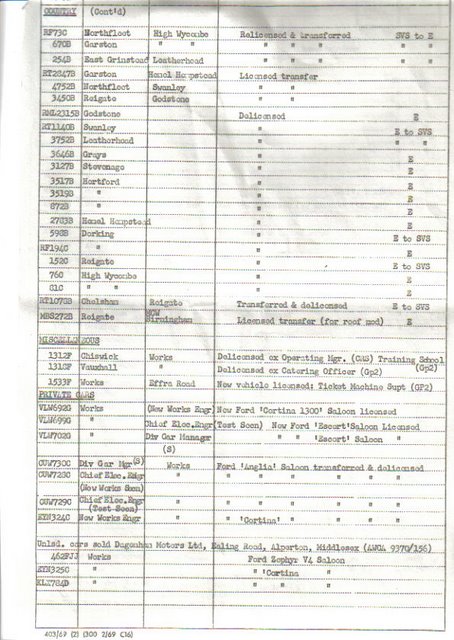 COUNTRY (Cont'd)
RF73C Northfleet High Wycombe Relicensed & transferred SVS to E
670B Garston " " " " " " " "
254B East Grinstead Leatherhead " " " " " "
RT2847B Garston Hemel Hempstead Licensed transfer
4752B Northfleet Swanley " "
3450B Reigate Godstone " "
RML2315B Godstone Delicensed E
RT1140B Swanley " E to SVS
3752B Leatherhead " " "
3646B Grays " E
3127B Stevenage " E
3517B Hertford " E
3519B " " E
872B " " E
2783B Hemel Hempstead " E
598B Dorking " E to SVS
RF194C " " E
152C Reigate " E to SVS
76C High Wycombe " E
81C " " " E
RT1078B Chelsham Reigate Transferred & delicensed E to SVS
MBS272B Reigate NOW Birmingham Licensed transfer (for roof mod) E
MISCELLANEOUS
1312F Chiswick Works Delicensed ex Operating Mgr. (CAS) Training School (Gp2)
1313F Vauxhall " Delicensed ex Catering Officer (Gp2)
1533F Works Effra Road New vehicle licensed: Ticket Machine Supt (GP2)
PRIVATE CARS
VLW692G Works (New Works Engr) New Ford 'Cortina 1300' Saloon licensed
VLW699G Chief Elec.Engr (Test Secn) New Ford 'Escort' Saloon Licensed
VLW702G Div Gar Manager (S) " " 'Escort' Saloon "
CUW730C Div Gar Mgr (S) Works Ford 'Anglia' Saloon transferred & delicensed
CUW728C Chief Elec.Engr (New Works Secn) " " " " " " "
CUW729C Chief Elec.Engr (Test Secn) " " " " " " "
EYN324C New Works Engr " " 'Cortina' " " " "
Unlsd. cars sold Dagenham Motors Ltd, Ealing Road, Alperton, Middlesex (AWGA 9370/156)
462FJJ Works Ford Zephyr V4 Saloon
EYN325C " " 'Cortina "
KLX784D " " " "
403/69 (2) (300 2/69 C16)